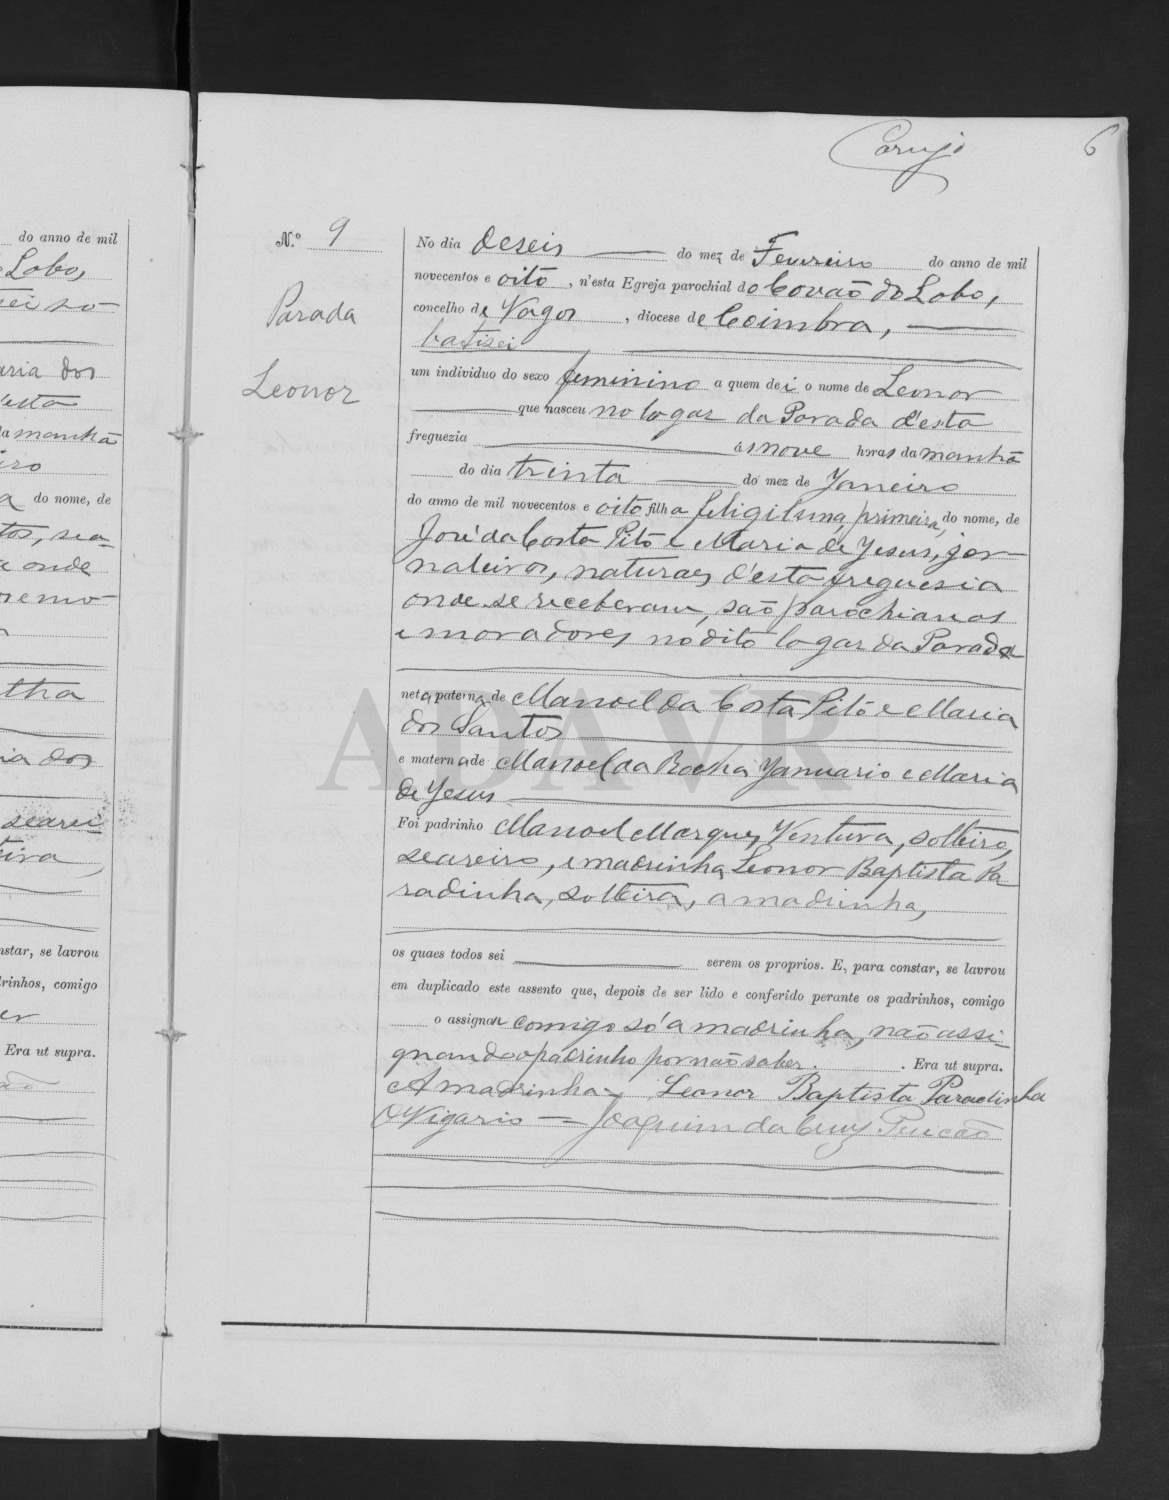 Carujo
6
do anno de mil
Lobo,
aria dos
d'esta
da manhã
do nome, de
tos, sea-
a onde
tha
ia dos
seareiro
nstar, se lavrou
drinhos, comigo
Era ut supra.
N.º 9
Parada
Leonor
No dia deseis do mez de Fevereiro do anno de mil
novecentos e oito, n'esta Egreja parochial do Covaõ do Lobo,
concelho de Vagos, diocese de Coimbra,
batisei
um individuo do sexo feminino a quem dei o nome de Leonor
que nasceu no logar da Parada d'esta
freguezia ás nove horas da manhã
do dia trinta do mez de Janeiro
do anno de mil novecentos e oito filha legitima, primeira, do nome, de
José da Costa Pitô e Maria de Jesus, jor-
naleiros, naturaes d'esta freguesia
onde se receberam, saõ parochianos
e moradores no dito logar da Parada
neta paterna de Manoel da Costa Pitô e Maria
dos Santos
e materna de Manoel da Rocha Januario e Maria
de Jesus
Foi padrinho Manoel Marques Ventura, solteiro,
seareiro, e madrinha Leonor Baptista Pa-
radinha, solteira, a madrinha,
os quaes todos sei serem os proprios. E, para constar, se lavrou
em duplicado este assento que, depois de ser lido e conferido perante os padrinhos, comigo
o assignou comigo só a madrinha, naõ assi-
gnando o padrinho por naõ saber. Era ut supra.
A madrinha Leonor Baptista Paradinha
O Vigario = Joaquim da Cruz
ADAVR